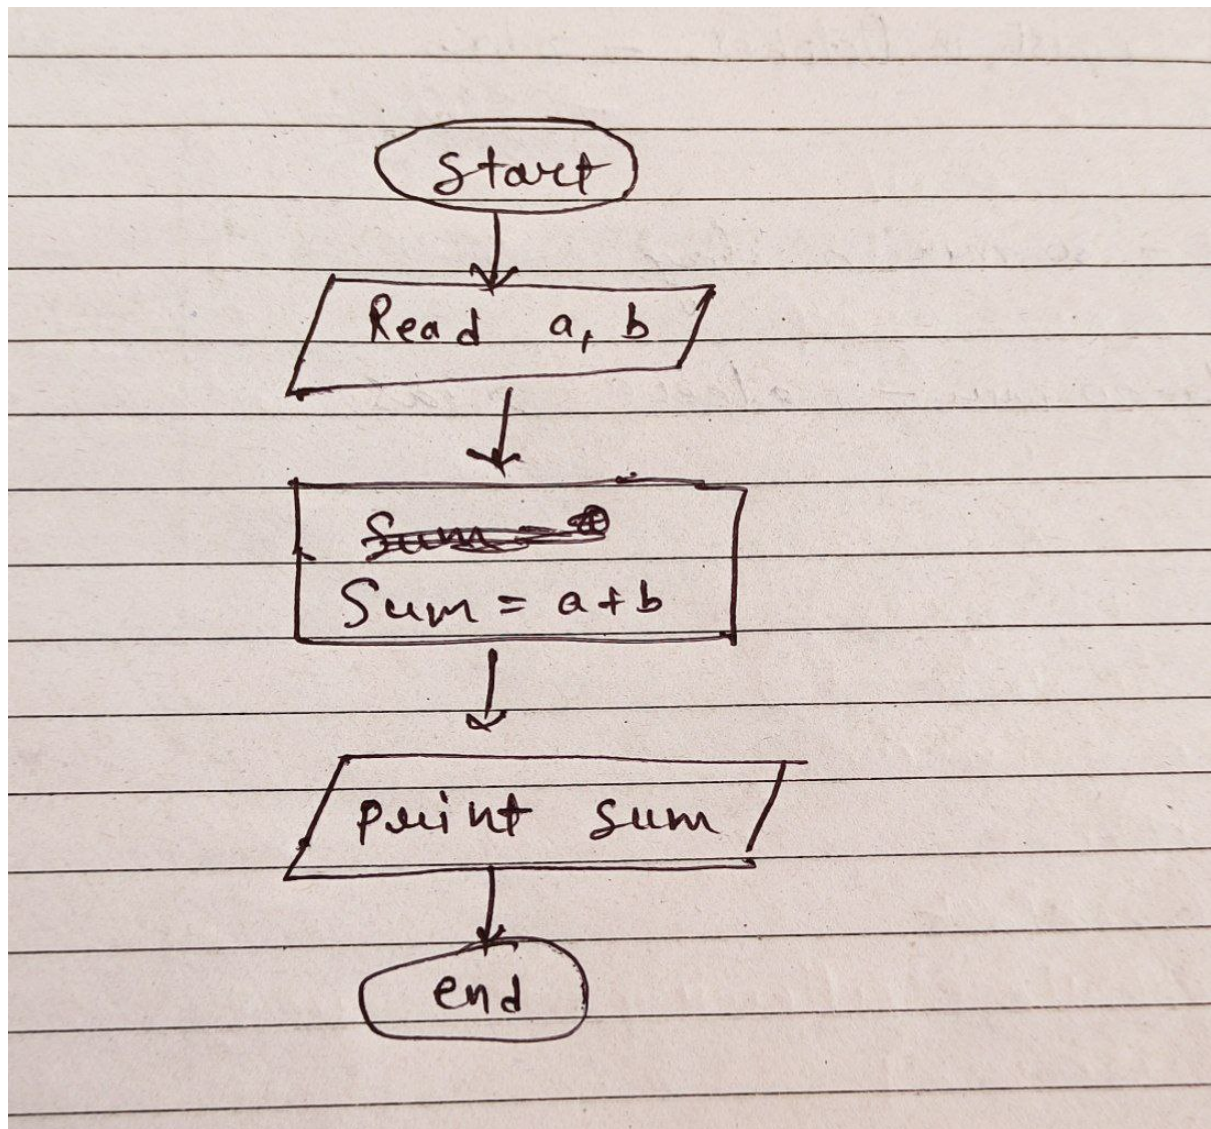 Start
Read a, b
Sum = a+b
print sum
end